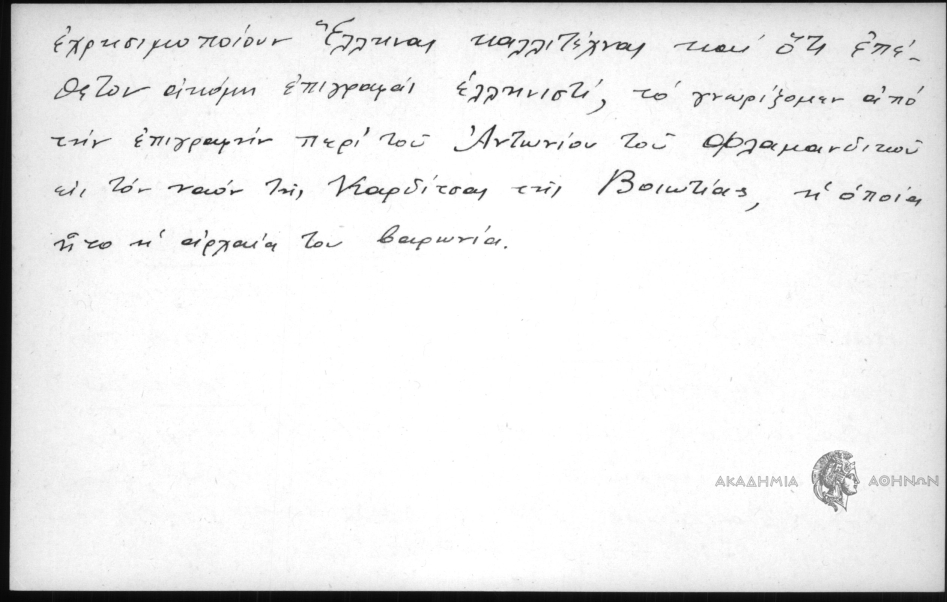 ἐχρησιμοποίουν Ἕλληνας καλλιτέχνας καί ὅτι ἐπέ-
θετον ἀκόμη ἐπιγραφάς ἑλληνιστί, τό γνωρίζομεν ἀπό
τήν ἐπιγραφήν περί τοῦ Ἀντωνίου τοῦ Φλαμανδικοῦ
εἰς τόν ναόν τῆς Καρδίτσας τῆς Βοιωτίας, ἡ ὁποία
ἦτο ἡ ἀρχαία του βαρωνία.
ΑΚΑΔΗΜΙΑ ΑΘΗΝΩΝ